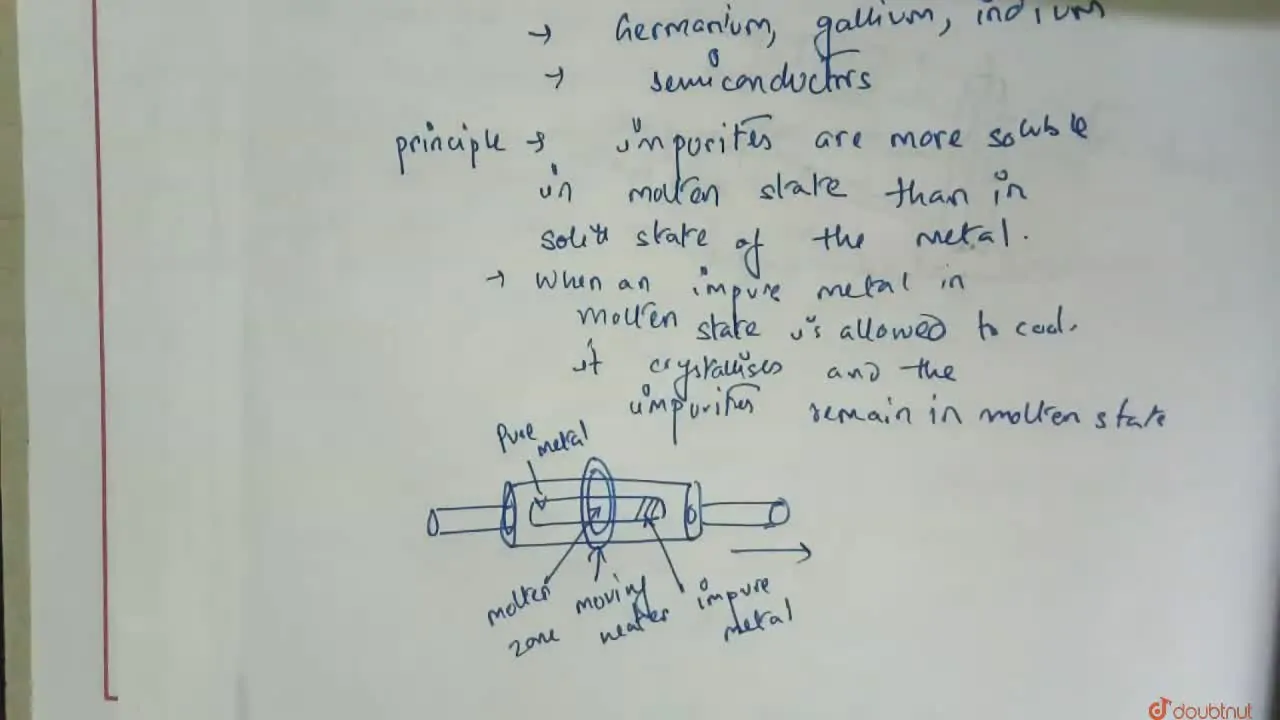 → Germanium, gallium, indium
→ semiconductors
principle → impurites are more soluble
in molten state than in
solid state of the metal.
→ When an impure metal in
molten state is allowed to cool.
it crystallises and the
impurities remain in molten state
pure metal
molten zone
moving heater
impure metal
doubtnut